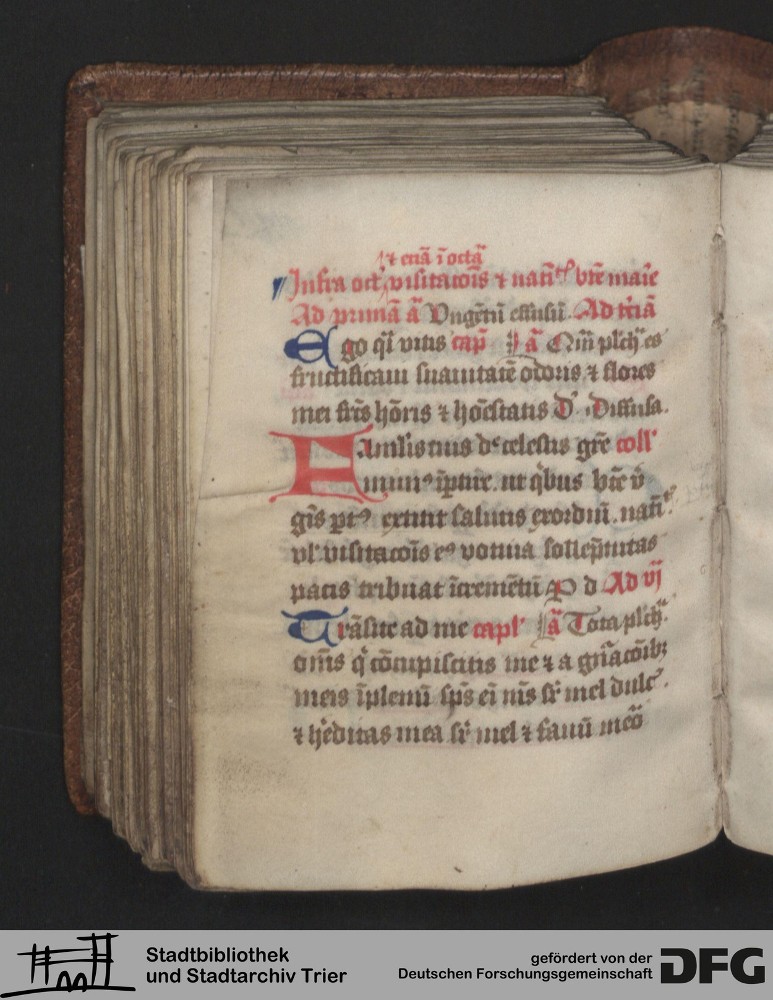 ⁊ eciā ī octā
Infra oct visitacōis ⁊ nati bte marie
Ad primā ā Vngētū effusū. Ad t'ciā
Ego q̄i vitis cap̄ ā
fructificaui suauitatē odoris ⁊ flores
mei frūs hōris ⁊ hōestatis D. Diffusa.
Famlis tuis de celestis gr̄e coll'
mun' īptire. ut qͥbus bt̄e v
gīs pt' extitit salutis exordiū. nati
vl' visitacōis e' votiua sollēp̄nitas
pacis tribuat īcremētū P d Ad vj
Trāsite ad me capl' ā Tota plch.
om̄s q̄ cōcupiscitis me ⁊ a gn̄acōib;
meis īplemī sp̄s ei m̄s sr mel dulc'.
⁊ h'editas mea sr mel ⁊ fauū
Stadtbibliothek
und Stadtarchiv Trier
gefördert von der
Deutschen Forschungsgemeinschaft
DFG